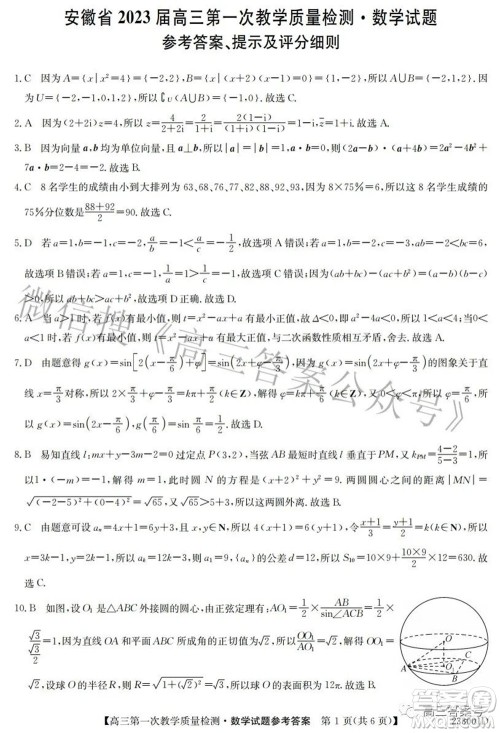 安徽省 2023 届高三第一次教学质量检测·数学试题
参考答案、提示及评分细则
1.C 因为 A={x|x²=4}={-2,2}, B={x|(x+2)(x-1)=0}={1,-2}, 所以 A∪B={-2,1,2}. 因
为 U={-2,-1,0,1,2}, 所以 ∁U(A∪B)={-1,0}. 故选 C.
2.A 因为(2+2i)z=4, 所以 z=4/(2+2i)=2/(1+i)=2(1-i)/((1+i)(1-i))=1-i, z̄=1+i. 故选 A.
3.B 因为向量 a,b 均为单位向量, 且 a⊥b, 所以|a|=|b|=1, a·b=0, 则(2a-b)·(a+4b)=2a²-4b²+
7a·b=2-4=-2. 故选 B.
4.C 8 名学生的成绩由小到大排列为 63,68,76,77,82,88,92,93, 因为 8×75%=6, 所以成绩的
75%分位数是 (88+92)/2=90. 故选 C.
5.D 若 a=1,b=-1,c=-2, a/b=-1<a/c=-1/2, 故选项 A 错误; 若 a=3,b=2,c=-3, ab-ac>bc=6,
故选项 B 错误; 若 a=1,b=0,c=-1, 则 ab=bc, 故选项 C 错误; 因为(ab+bc)-(ac+b²)=(a-b)(b-c)
>0, 所以 ab+bc>ac+b², 故选项 D 正确. 故选 D.
6.A 当 a>1 时, 若 f(x)有最小值, 所以 x²-ax+1 有最小正值, 故 Δ=a²-4<0, 所以 1<a<4; 当 0
<a<1 时, 若 f(x)有最小值, 则 x²-ax+1 有最大正值, 与二次函数性质相互矛盾, 舍去. 故选 A.
7.D 由题意得 g(x)=sin[2(x-π/6)+φ]=sin(2x-π/3+φ), 因为 g(x)=sin(2x-π/3+φ)的图象关于直
线 x=π/3 对称, 所以 2×π/3-π/3+φ=kπ+π/2(k∈Z), 解得 φ=kπ+π/6(k∈Z), 又 0<φ≤π/2, 所以 φ=π/6, 所
以 g(x)=sin(2x-π/6), g(π/6)=sin π/6=1/2. 故选 D.
8.B 易知直线 l:mx+y-3m-2=0 过定点 P(3,2), 当弦 AB 最短时直线 l 垂直于 PM, 又 kPM=(4-2)/(5-3)=1, 所
以 1·(-m)=-1, 解得 m=1, 此时圆 N 的方程是(x+2)²+y²=9. 两圆圆心之间的距离|MN|=
√((-2-5)²+(0-4)²)=√65, 又 5+3=√64<√65, 所以这两圆外离. 故选 B.
9.C 由题意可设 aₙ=4x+1=6y+3, 且 x,y∈N, 所以 2x-1=3y, 令 (x+1)/3=(y+1)/2=k, 则 k∈N, 所以
4x+1=12k-3, 所以 aₙ=12k-3, 且{aₙ}的公差 d=12, 所以 S₁₀=10×9+(10×9)/2×12=630. 故
选 C.
10.B 如图, 设 O₁ 是△ABC 外接圆的圆心, 由正弦定理有: AO₁=1/2×AB/sin∠ACB=1/2×
√3/(√3/2)=1, 因为直线 OA 和平面 ABC 所成角的正切值为 √2/2, 所以 OO₁/AO₁=√2/2, 解得 OO₁=
√2/2, 设球 O 的半径为 R, 则 R=√(OO₁²+AO₁²)=√(3/2)=√6/2, 所以球 O
【高三第一次教学质量检测·数学试题参考答案 第 1 页(共 6 页)】
微信搜《高三答案公众号》
高三答案号